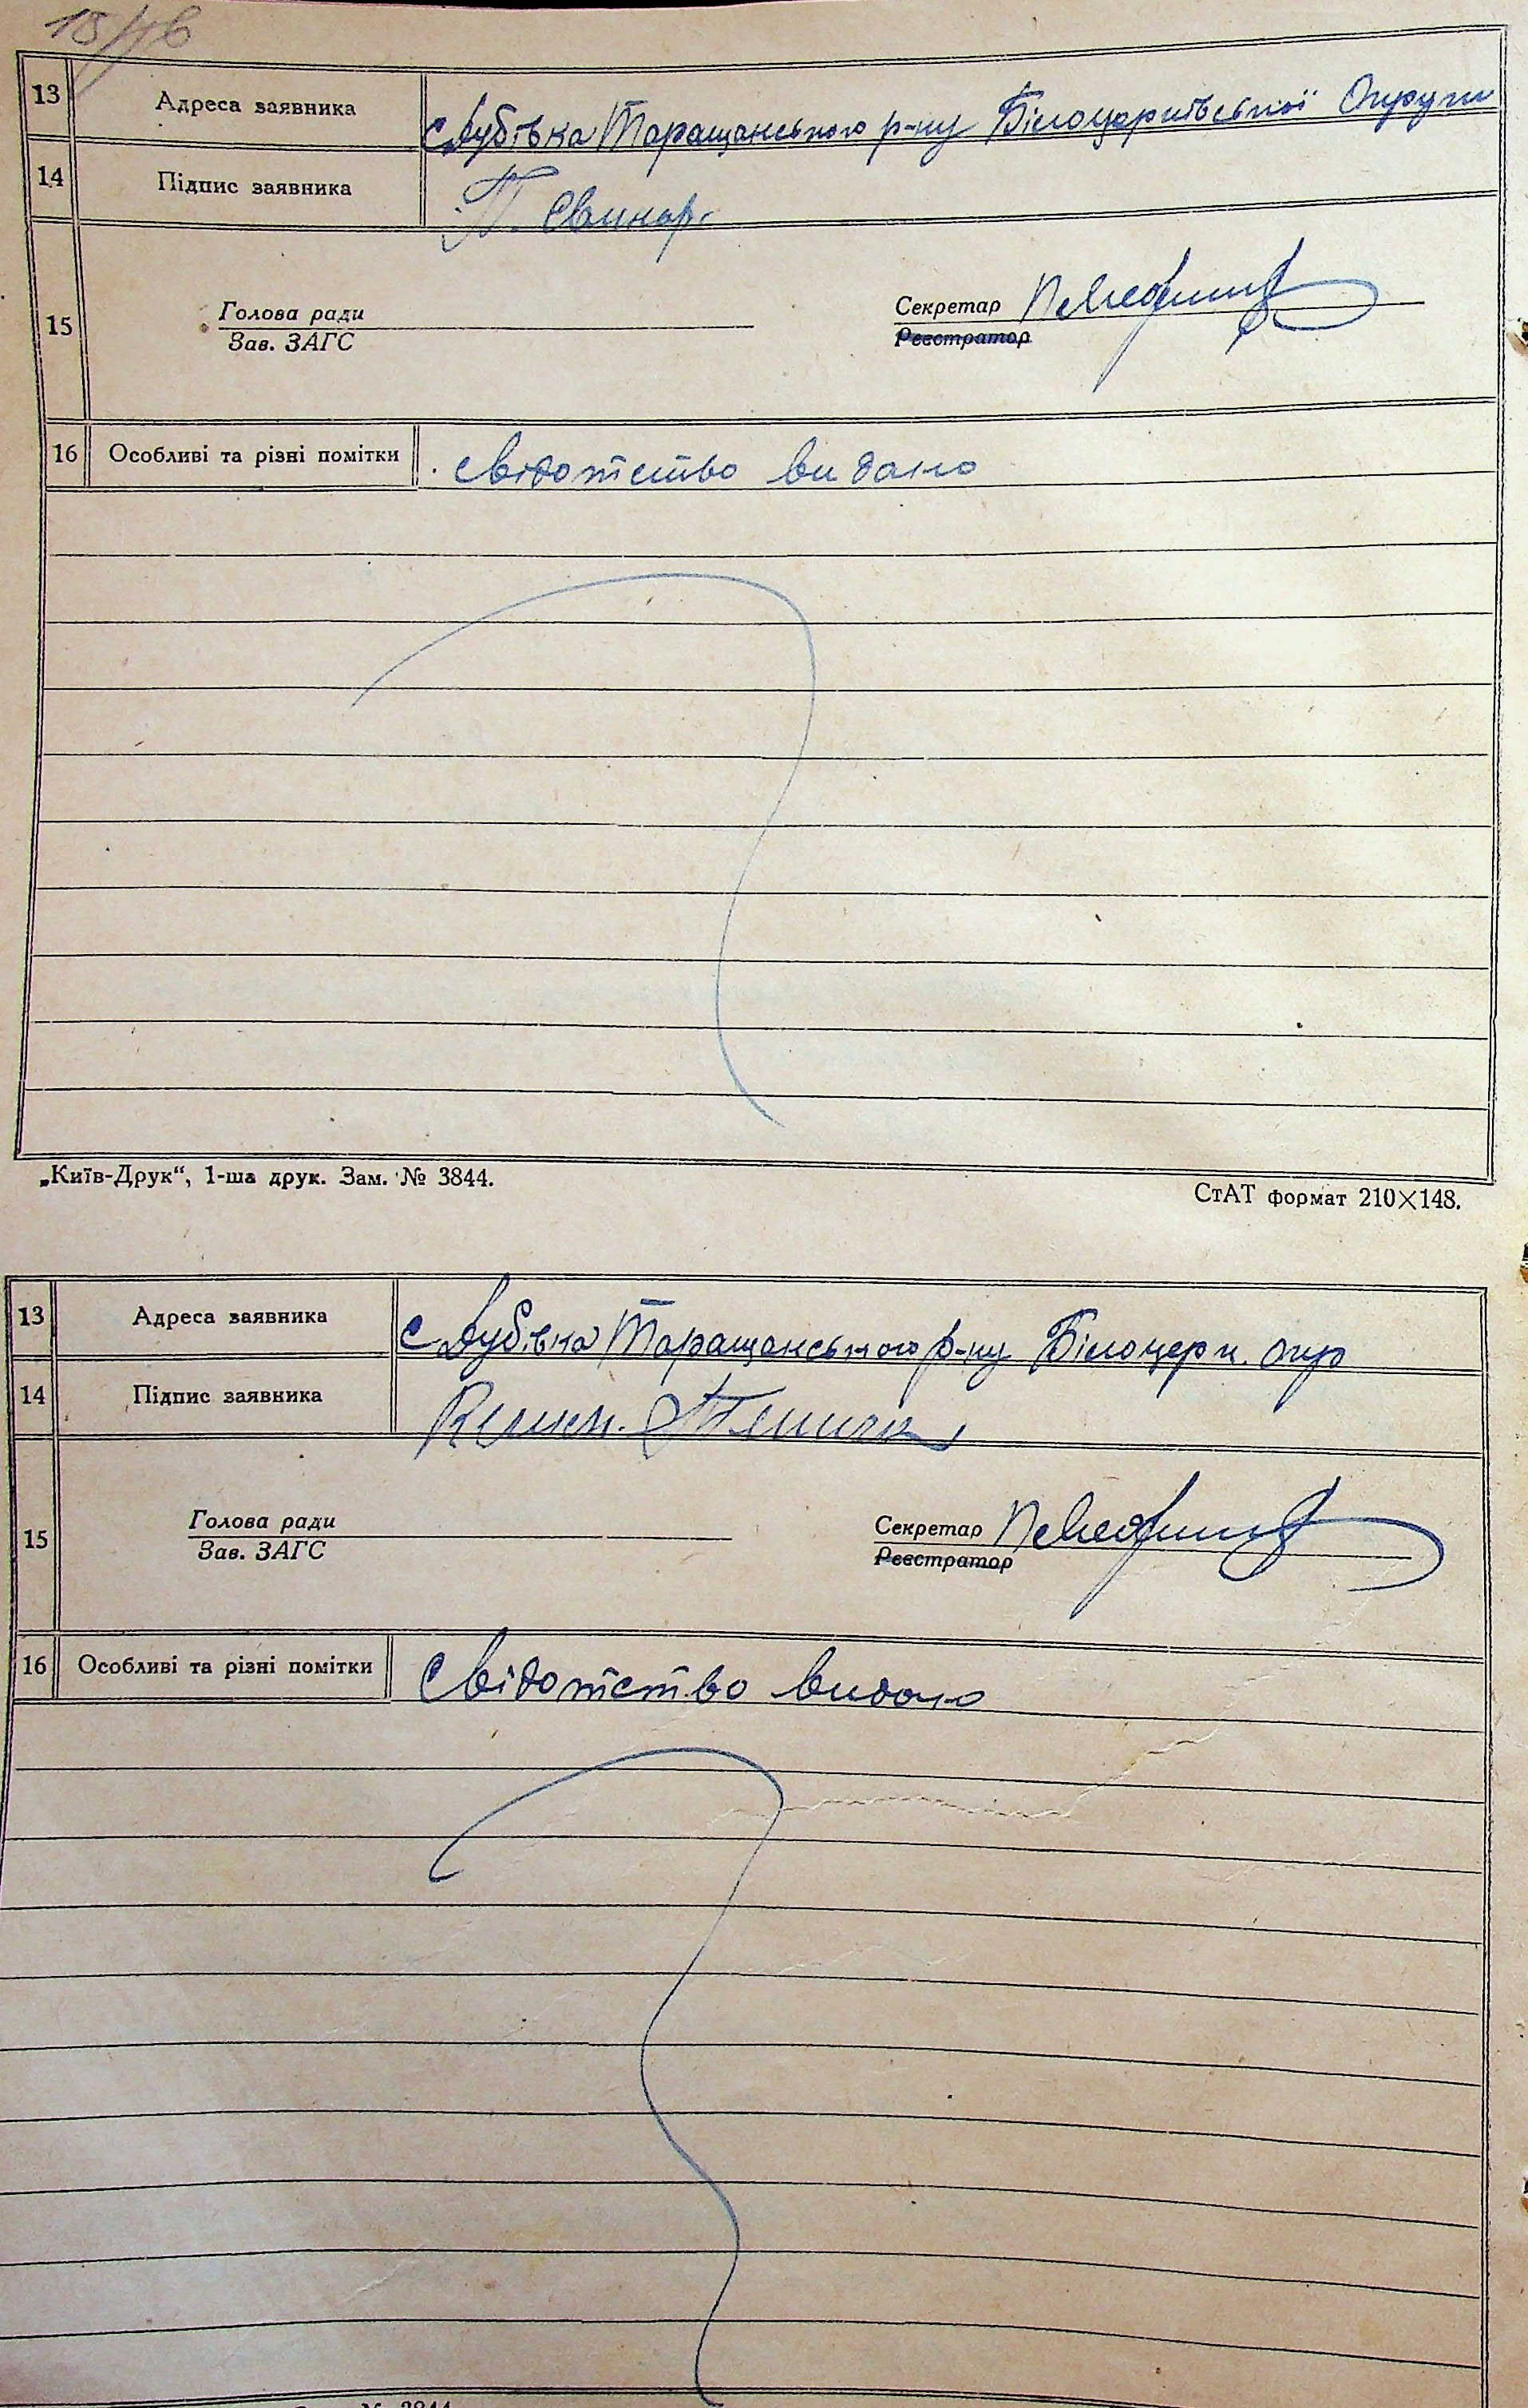 13 Адреса заявника с Дубівка Таращанського р-ну Білоцерківської Округи
14 Підпис заявника П. Свинар.
15 Голова ради Секретар
Зав. ЗАГС Реєстратор
16 Особливі та різні помітки свідотство видано
„Київ-Друк“, 1-ша друк. Зам. № 3844.
СтАТ формат 210×148.
13 Адреса заявника с Дубівка Таращанського р-ну Білоцерк. окр
14 Підпис заявника
15 Голова ради Секретар
Зав. ЗАГС Реєстратор
16 Особливі та різні помітки Свідотство видано